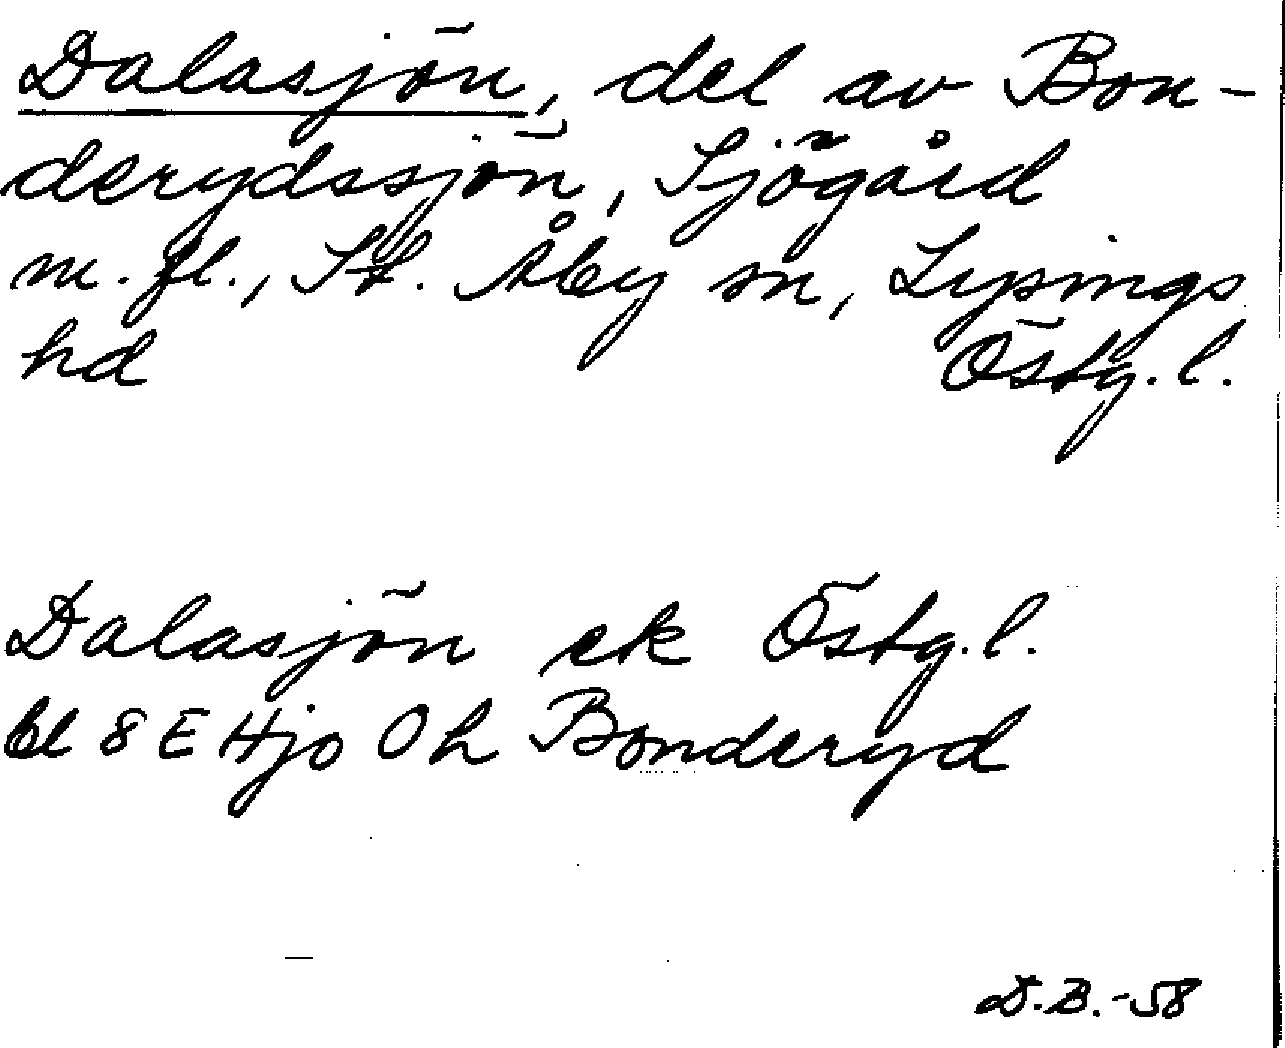 Dalasjön, del av Bon-
derydssjön, Sjögård
m. fl., St. Åby sn, Lysings
hd Östg. l.
Dalasjön ek Östg. l.
bl 8 E Hjo Oh Bonderyd
D.B.-58